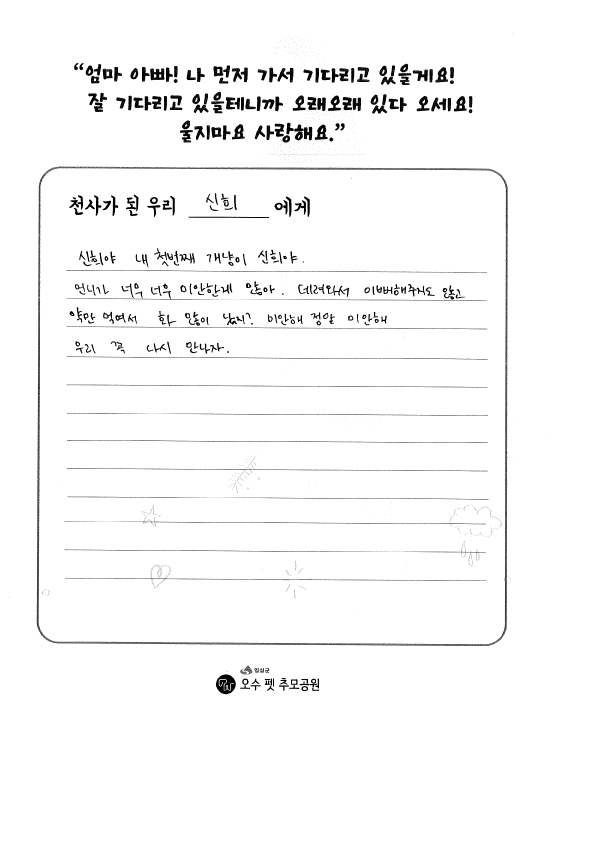 “엄마 아빠! 나 먼저 가서 기다리고 있을게요!
잘 기다리고 있을테니까 오래오래 있다 오세요!
울지마요 사랑해요.”
천사가 된 우리 신희 에게
신희야 내 첫번째 개냥이 신희야.
언니가 너무 너무 미안한게 많아. 데려와서 이뻐해주지도 않고
약만 먹여서 화 많이 났지? 미안해 정말 미안해
우리 꼭 다시 만나자.
임실군
오수 펫 추모공원